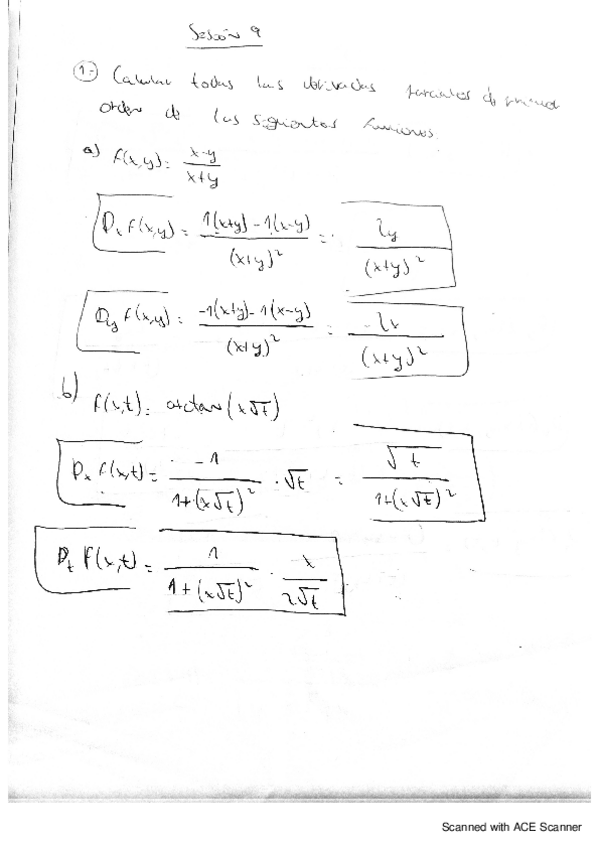 Sesión 9
1.- Calcular todas las derivadas parciales de primer
orden de las siguientes funciones.
a) f(x,y) = (x-y)/(x+y)
Dx f(x,y) = (1(x+y) - 1(x-y))/(x+y)² = 2y/(x+y)²
Dy f(x,y) = (-1(x+y) - 1(x-y))/(x+y)² = -2x/(x+y)²
b) f(x,t) = arctan(x√t)
Dx f(x,t) = 1/(1+(x√t)²) · √t = √t/(1+(x√t)²)
Dt f(x,t) = 1/(1+(x√t)²) · x/(2√t)
Scanned with ACE Scanner